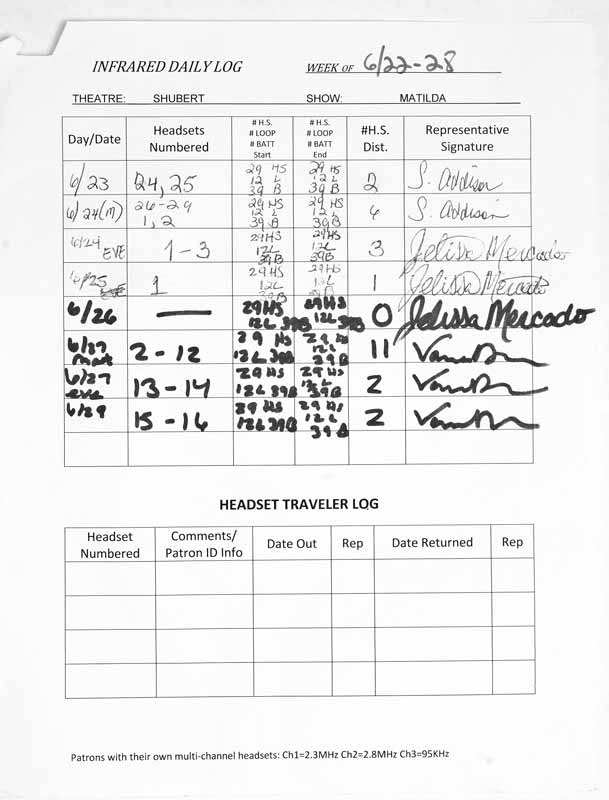 INFRARED DAILY LOG WEEK OF 6/22-28
THEATRE: SHUBERT SHOW: MATILDA
Day/Date Headsets Numbered # H.S. # LOOP # BATT Start # H.S. # LOOP # BATT End #H.S. Dist. Representative Signature
6/23 24, 25 29 HS 12 L 39 B 29 HS 12 L 39 B 2 S. Addison
6/24(M) 26-29 1, 2 29 HS 12 L 39 B 29 HS 12 L 39 B 6 S. Addison
6/24 EVE 1-3 29HS 12L 39B 29HS 12L 39B 3 Jelissa Mercado
6/25 1 29HS 12L 39B 29HS 12L 39B 1 Jelissa Mercado
6/26 — 29HS 12L 39B 29HS 12L 39B 0 Jelissa Mercado
6/27 mat 2-12 29 HS 12L 39B 29 HS 12L 39B 11
6/27 eve 13-14 29 HS 12L 39B 29 HS 12L 39B 2
15-16 29 HS 12L 39B 29 HS 12L 39B 2
HEADSET TRAVELER LOG
Headset Numbered Comments/ Patron ID Info Date Out Rep Date Returned Rep
Patrons with their own multi-channel headsets: Ch1=2.3MHz Ch2=2.8MHz Ch3=95KHz